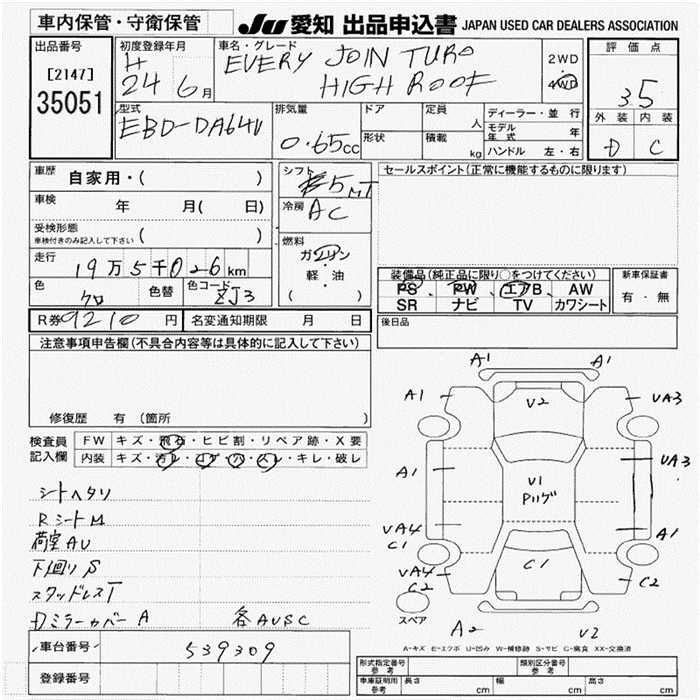 車内保管・守衛保管
JU 愛知 出品申込書 JAPAN USED CAR DEALERS ASSOCIATION
出品番号
[2147]
35051
初度登録年月
H
24 6月
車名・グレード
EVERY JOIN TURO
HIGH ROOF
2WD
4WD
評価点
3.5
外装 内装
D C
型式
EBD-DA64V
排気量
0.65cc
ドア
形状
定員
人
積載
kg
ディーラー・並行
モデル年式 年
ハンドル 左・右
車歴
自家用・( )
車検
年 月( 日)
受検形態
車検付きのみ記入して下さい ( )
走行
19万5千026km
色
クロ
色替
色コード
ZJ3
シフト
5MT
冷房
AC
燃料
ガソリン
・
軽・油
( )
セールスポイント(正常に機能するものに限ります)
装備品(純正品に限り○をつけてください)
PS PW エアB AW
SR ナビ TV カワシート
新車保証書
有・無
R券 9210円
名変通知期限 月 日
後日品
注意事項申告欄(不具合内容等は具体的に記入して下さい)
修復歴 有 (箇所 )
検査員
記入欄
FW キズ・飛石・ヒビ割・リペア跡・X要
内装 キズ・汚レ・コゲ・穴・スレ・キレ・破レ
シートヘタリ
RシートM
荷室AU
下回りS
スタッドレスT
DミラーカバーA
各AUSC
A1
A1
A1
V2
UA3
A1
V1
Pリゲ
UA3
UA4
C1
A1
UA4
C2
C1
C2
スペア
A2
V2
A-キズ E-エクボ U-凹み W-補修跡 S-サビ C-腐食 XX-交換済
車台番号
539309
登録番号
形式指定番号
参考
類別区分番号
参考
車庫証明用
参考
長さ cm
幅 cm
高さ cm